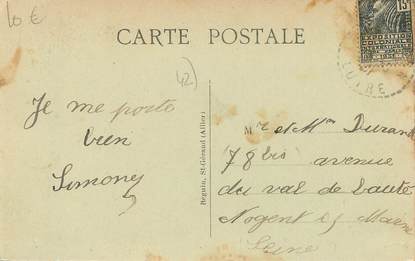 10 €
CARTE POSTALE
42)
15
EXPOSITION
COLONIALE
LOIRE
Je me porte
bien
Simone
Beguin, St-Gérand (Allier)
Mr et Mme Durand
78 bis avenue
du val de beauté
Nogent s/ Marne
Seine